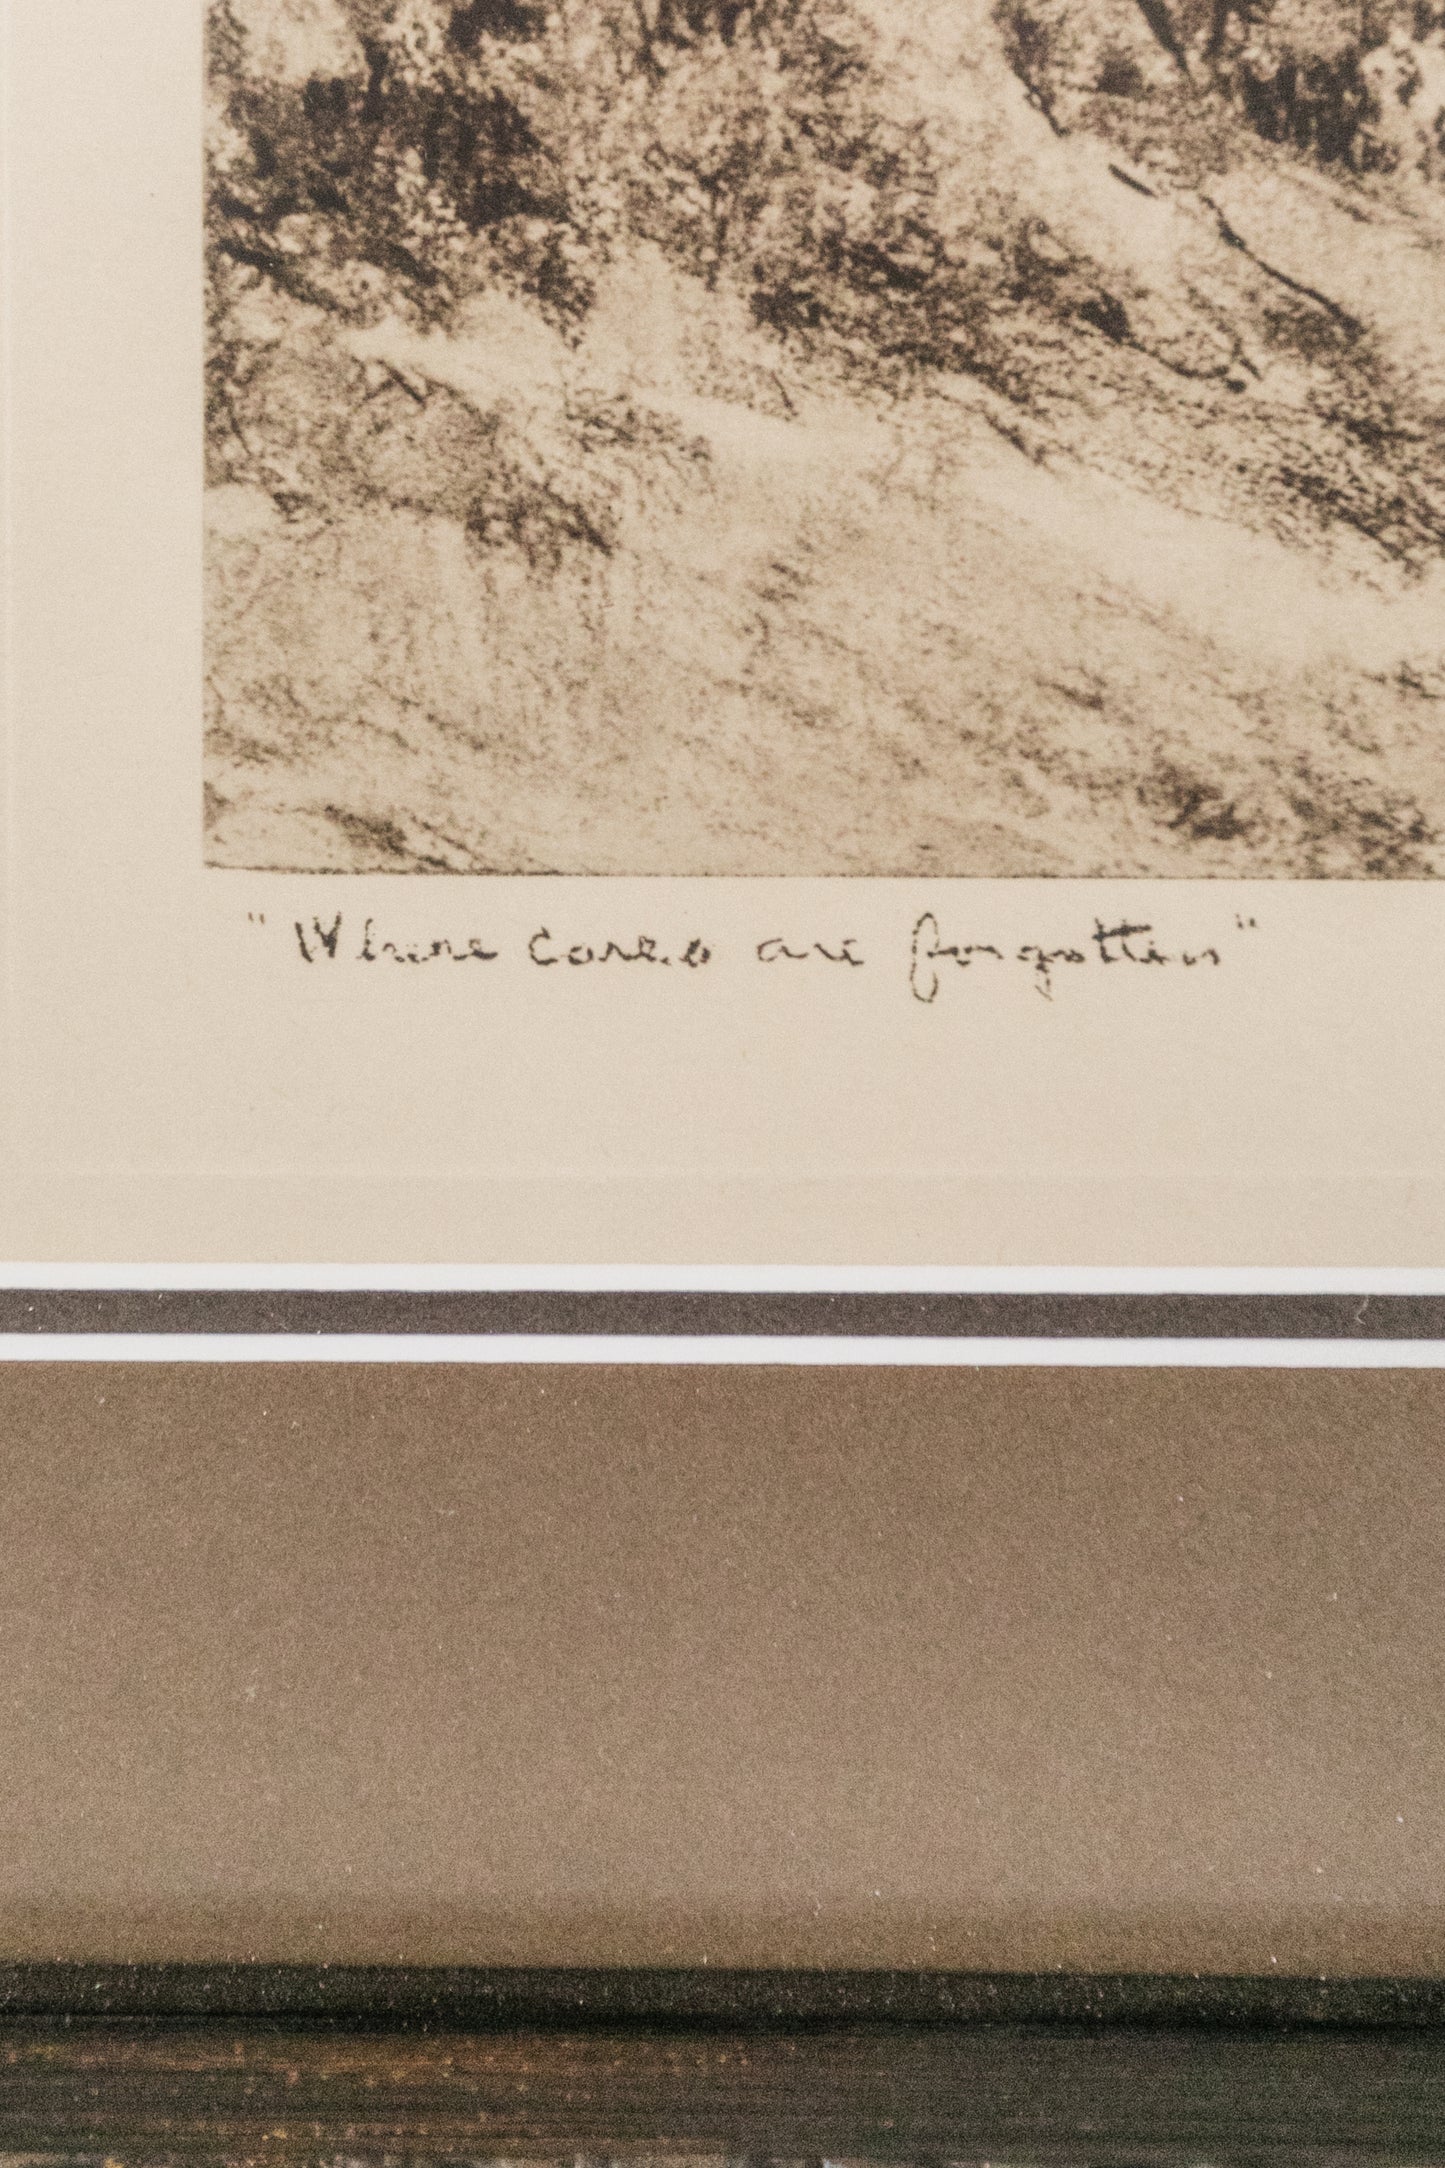 "Where cares are forgotten"